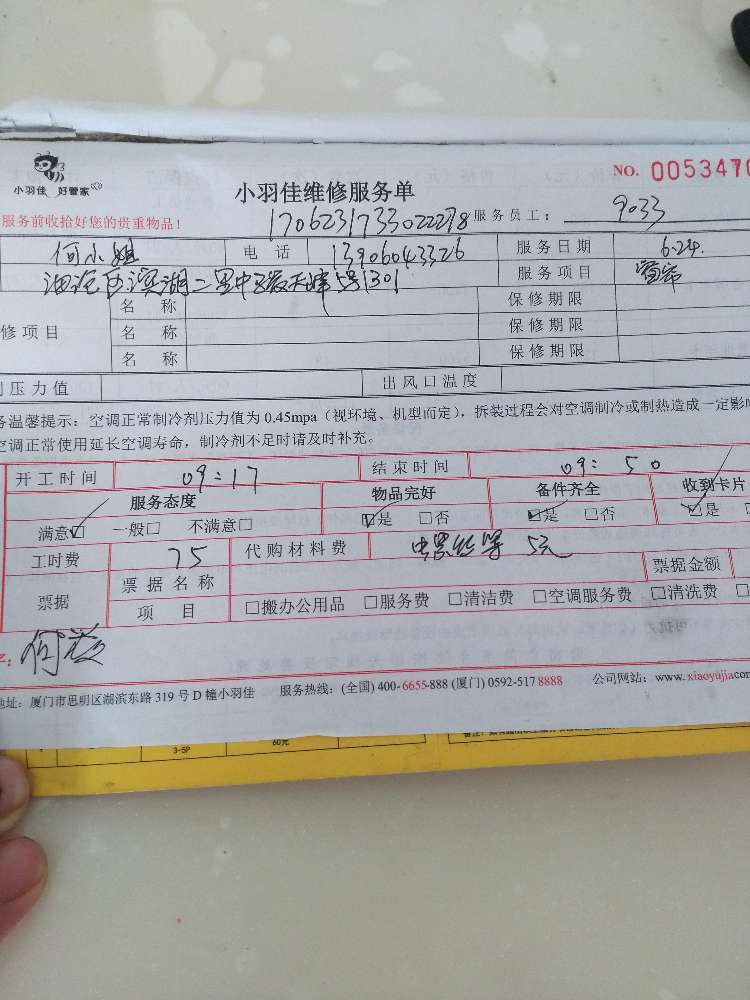 NO. 0053470
小羽佳 好管家
小羽佳维修服务单
服务前收拾好您的贵重物品!
1706231733022278
服务员工: 9033
何小姐 电话 13906043326 服务日期 6.24.
滨湖二里中 5号1301 服务项目 窗帘
修项目 名称 保修期限
名称 保修期限
名称 保修期限
压力值 出风口温度
务温馨提示:空调正常制冷剂压力值为 0.45mpa(视环境、机型而定),拆装过程会对空调制冷或制热造成一定影响
空调正常使用延长空调寿命,制冷剂不足时请及时补充。
开工时间 09:17 结束时间 09:50
服务态度 物品完好 备件齐全 收到卡片
满意☑ 一般□ 不满意□ ☑是 □否 ☑是 □否 ☑是
工时费 75 代购材料费 螺丝等 5元
票据 票据名称 票据金额
项目 □搬办公用品 □服务费 □清洁费 □空调服务费 □清洗费
何
地址:厦门市思明区湖滨东路 319 号 D 幢小羽佳 服务热线:(全国) 400-6655-888 (厦门) 0592-517 8888 公司网站:www.xiaoyujia.com
3-5P 60元